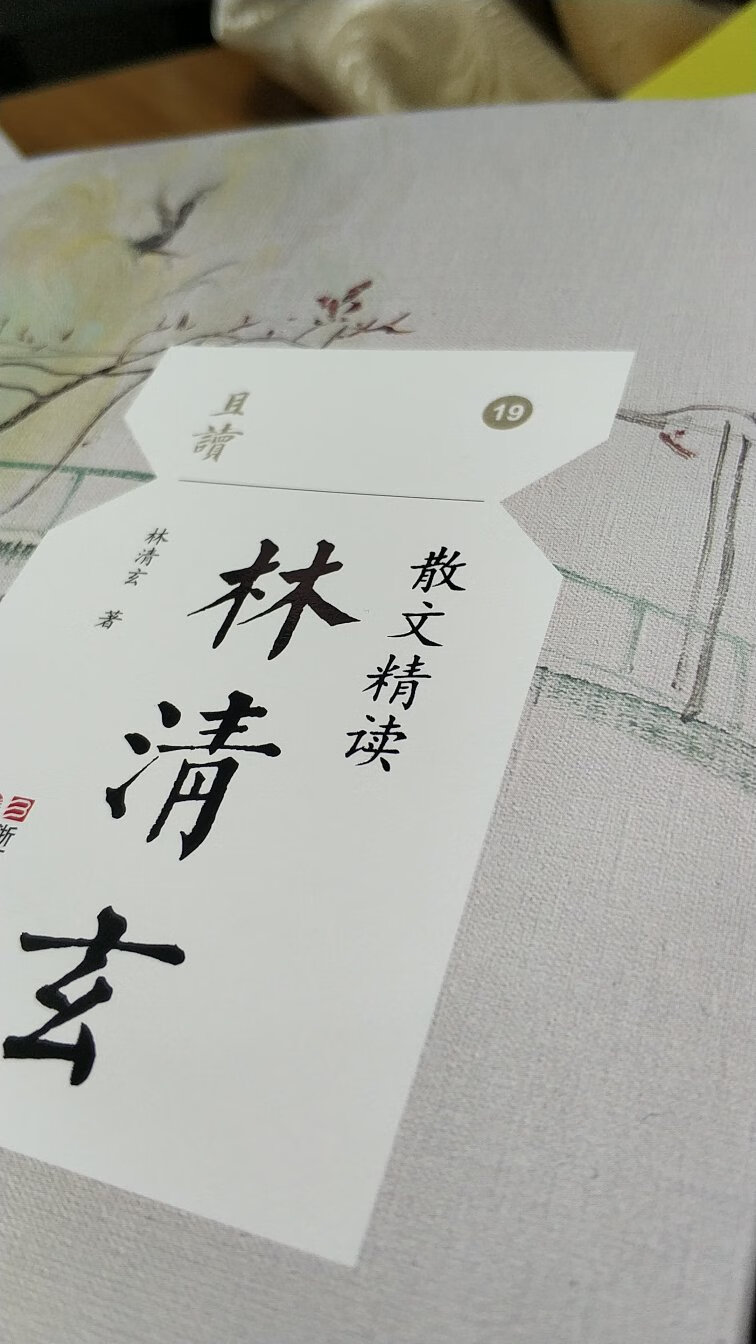 且讀
19
散文精读
林清玄
林清玄 著
浙